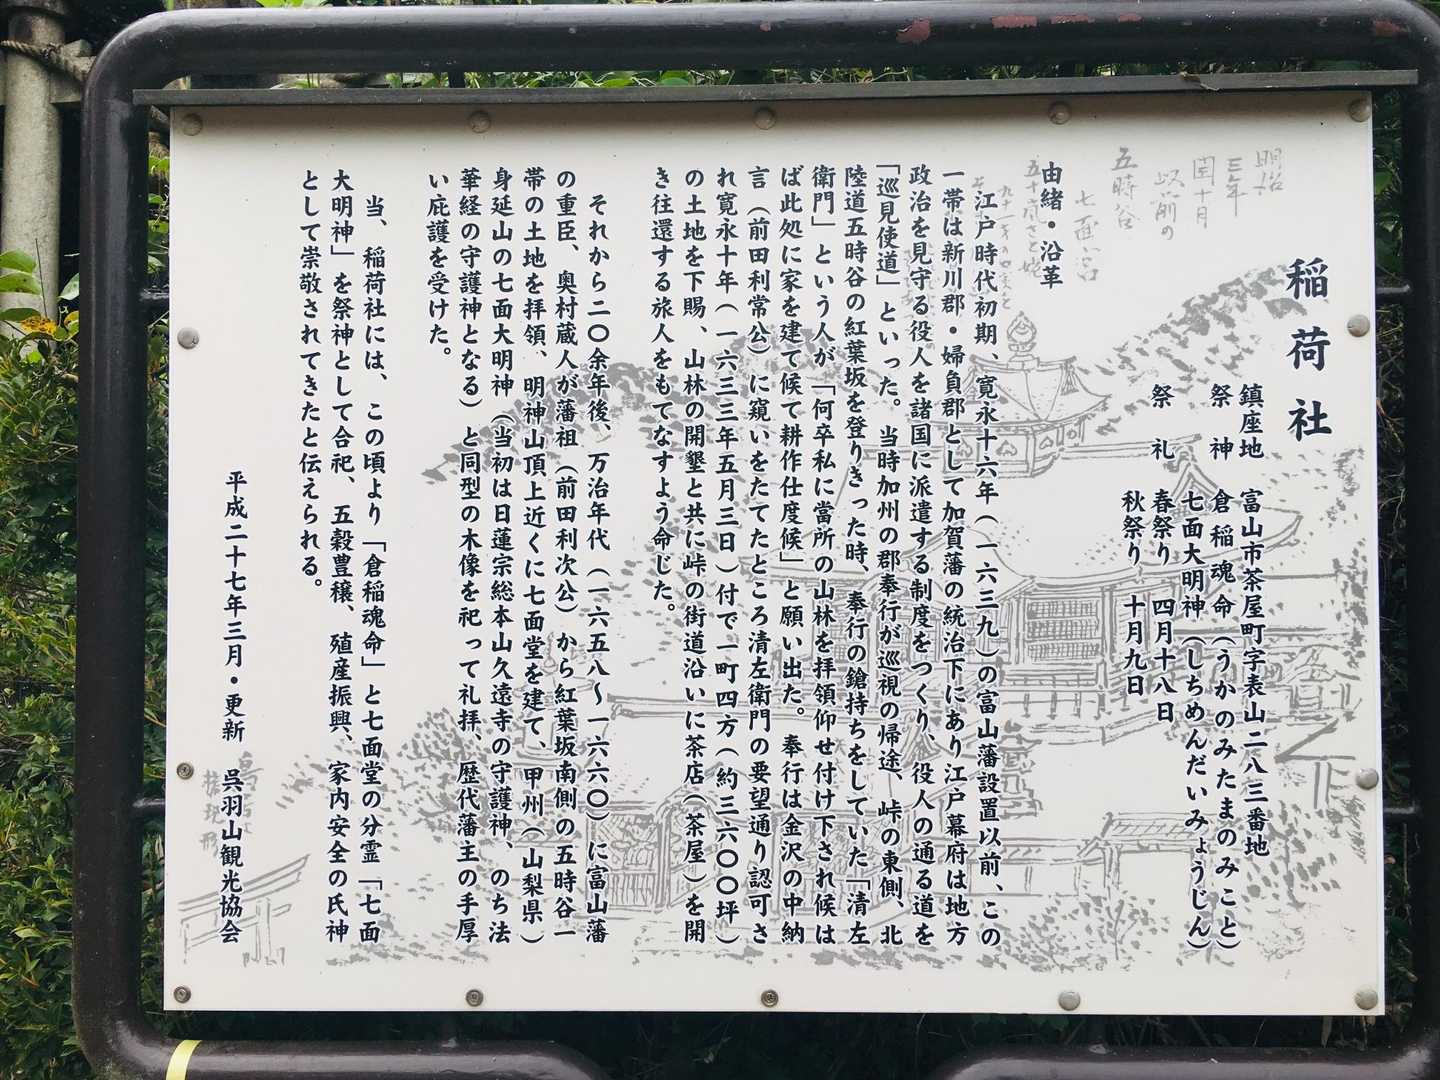 稲荷社
鎮座地 富山市茶屋町字表山二八三番地
祭神 倉稲魂命(うかのみたまのみこと)
七面大明神(しちめんだいみょうじん)
祭礼 春祭り 四月十八日
秋祭り 十月九日
明治
三年
閏十月
以前の
五時谷
七面宮
由緒・沿革
江戸時代初期、寛永十六年(一六三九)の富山藩設置以前、この
一帯は新川郡・婦負郡として加賀藩の統治下にあり江戸幕府は地方
政治を見守る役人を諸国に派遣する制度をつくり、役人の通る道を
「巡見使道」といった。当時加州の郡奉行が巡視の帰途、峠の東側、北
陸道五時谷の紅葉坂を登りきった時、奉行の鎗持ちをしていた「清左
衛門」という人が「何卒私に當所の山林を拝領仰せ付け下され候は
ば此処に家を建て候て耕作仕度候」と願い出た。奉行は金沢の中納
言(前田利常公)に窺いをたてたところ清左衛門の要望通り認可さ
れ寛永十年(一六三三年五月三日)付で一町四方(約三六〇〇坪)
の土地を下賜、山林の開墾と共に峠の街道沿いに茶店(茶屋)を開
き往還する旅人をもてなすよう命じた。
それから二〇余年後、万治年代(一六五八〜一六六〇)に富山藩
の重臣、奥村蔵人が藩祖(前田利次公)から紅葉坂南側の五時谷一
帯の土地を拝領、明神山頂上近くに七面堂を建て、甲州(山梨県)
身延山の七面大明神(当初は日蓮宗総本山久遠寺の守護神、のち法
華経の守護神となる)と同型の木像を祀って礼拝、歴代藩主の手厚
い庇護を受けた。
当、稲荷社には、この頃より「倉稲魂命」と七面堂の分霊「七面
大明神」を祭神として合祀、五穀豊穣、殖産振興、家内安全の氏神
として崇敬されてきたと伝えられる。
平成二十七年三月・更新 呉羽山観光協会